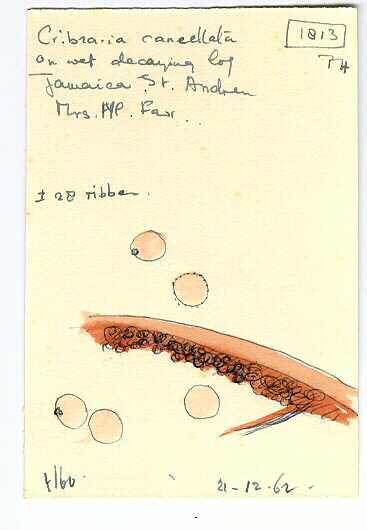 Cribraria cancellata
on wet decaying log
Jamaica St. Andrew
Mrs.
1813
± 28 ribben.
21-12-62